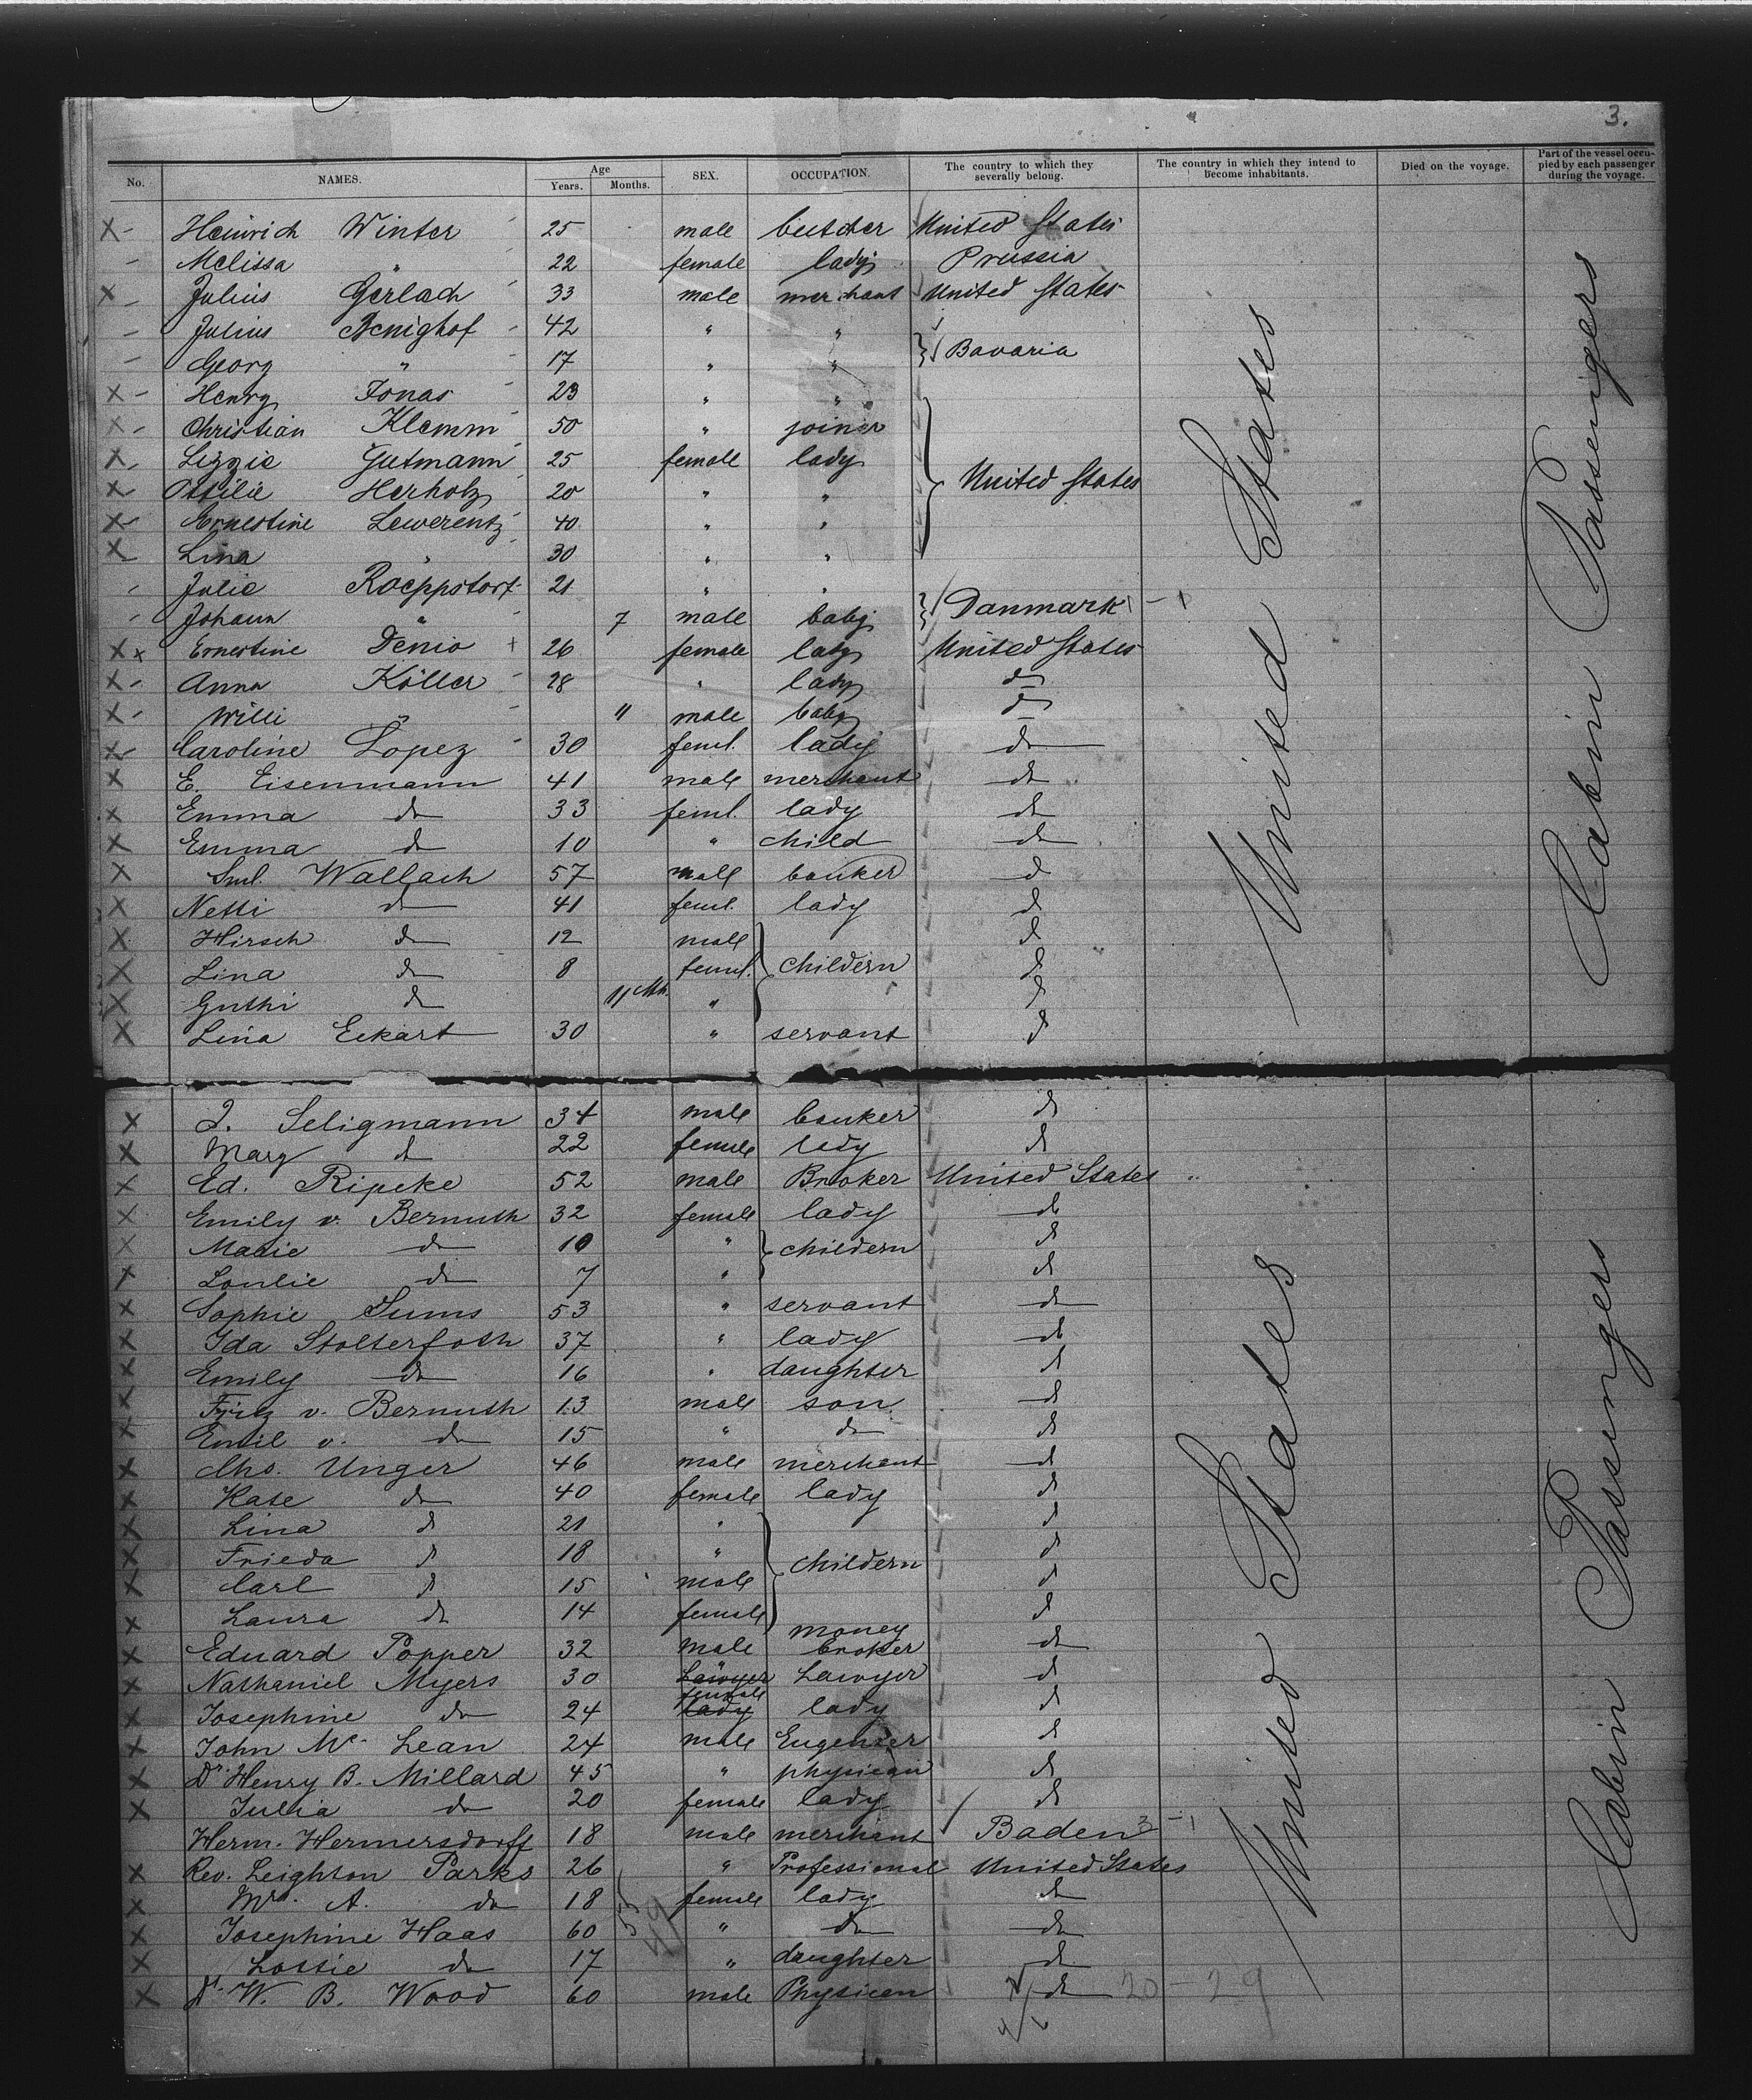 3.
No. NAMES. Age Years. Months. SEX. OCCUPATION. The country to which they severally belong. The country in which they intend to become inhabitants. Died on the voyage. Part of the vessel occupied by each passenger during the voyage.
X - Heinrich Winter 25 male butcher United States
- Melissa " 22 female lady Prussia
X - Julius Gerlach 33 male merchant United States
- Julius Benighof 42 " "
- Georg " 17 " " Bavaria
X - Henry Jonas 23 " "
X - Christian Klemm 50 " joiner
X - Lizzie Gutmann 25 female lady United States
X - Ottilie Herholz 20 " "
X - Ernestine Lewerentz 40 " "
X - Lina " 30 " "
- Julie Roeppstorf 21 " "
- Johann " 7 male baby Danmark - 1
X x Ernestine Denio + 26 female lady United States
X - Anna Köller 28 " lady do
X - Willi " 11 male baby do
X - Caroline Lopez 30 feml. lady do
X E. Eisenmann 41 male merchant do
X Emma do 33 feml. lady do
X Emma do 10 " child do
X Sml. Wallach 57 male banker do
X Netti do 41 feml. lady do
X Hirsch do 12 male do
X Lina do 8 feml. childern do
X Guthi do 11 Mh. " do
X Lina Eckart 30 " servant do
United States
Cabin Passengers
X J. Seligmann 34 male banker do
X Mary do 22 female lady do
X Ed. Ripcke 52 male Broker United States "
X Emily v. Bernuth 32 female lady do
X Marie do 10 " childern do
X Loulie do 7 " do
X Sophie Sums 53 " servant do
X Ida Stolterfoth 37 " lady do
X Emily do 16 " daughter do
X Fritz v. Bernuth 13 male son do
X Emil v. do 15 " do do
X Chs. Unger 46 male merchant do
X Kate do 40 female lady do
X Lina do 21 " do
X Frieda do 18 " childern do
X Carl do 15 male do
X Laura do 14 female do
X Eduard Popper 32 male money broker do
X Nathaniel Myers 30 Lawyer Lawyer do
X Josephine do 24 female lady lady do
X John Mc. Lean 24 male Eugenier do
X Dr. Henry B. Millard 45 " physician do
X Julia do 20 female lady do
Herm. Hermersdorff 18 male merchant Baden 3 - 1
X Rev. Leighton Parks 26 " Professional United States
X Mrs. A. do 18 female lady do
X Josephine Haas 60 " do do
X Lottie do 17 " daughter do
X Dr. W. B. Wood 60 male Physicen do 20 - 29
55
49
United States
Cabin Passengers